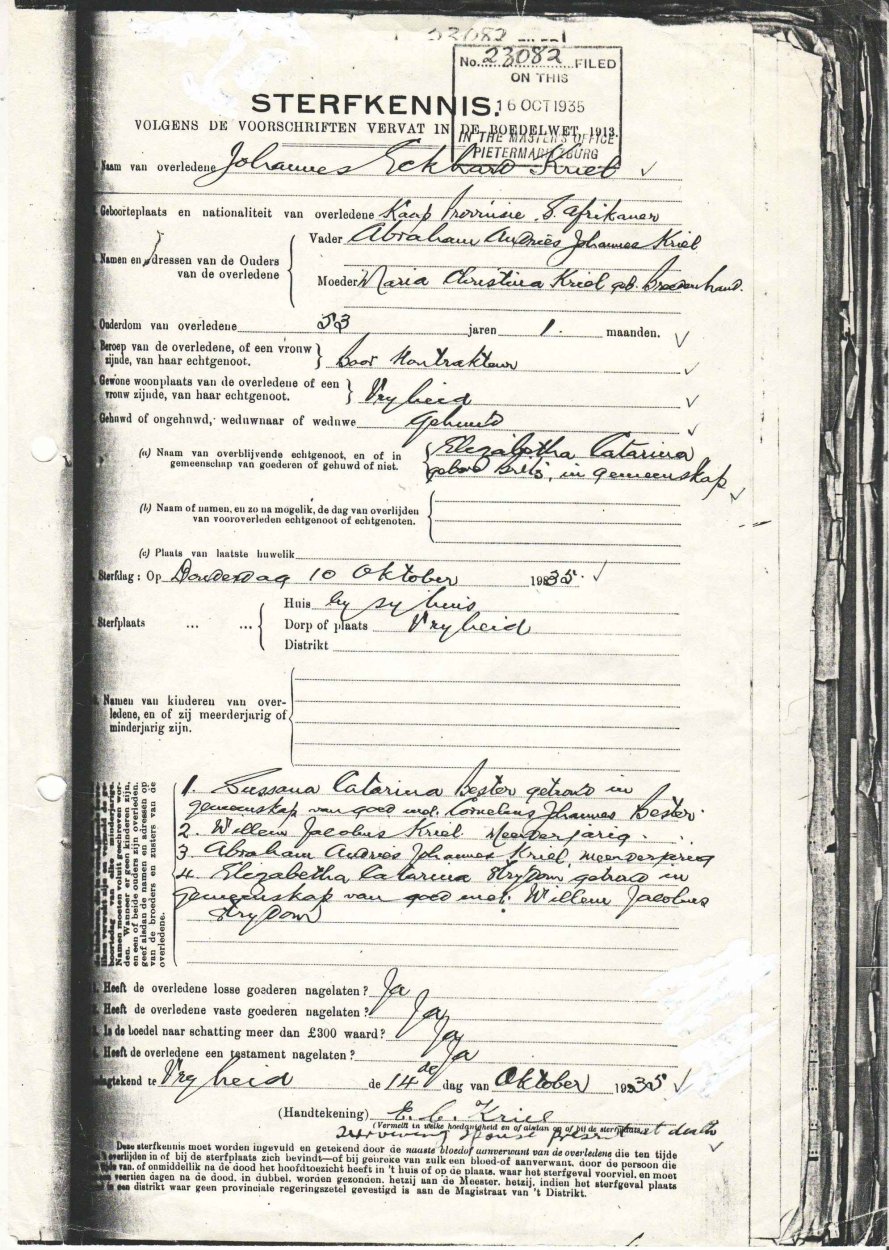 23082
No. 23082 FILED
ON THIS
16 OCT 1935
IN THE MASTER'S OFFICE
PIETERMARITZBURG
STERFKENNIS.
VOLGENS DE VOORSCHRIFTEN VERVAT IN DE BOEDELWET, 1913.
Naam van overledene Johannes Eckhard Kriel
Geboorteplaats en nationaliteit van overledene Kaap Provinsie S. Afrikaner
Namen en adressen van de Ouders van de overledene
Vader Abraham Andries Johannes Kriel
Moeder Maria Christina Kriel geb.
Ouderdom van overledene 53 jaren 1. maanden.
Beroep van de overledene, of een vrouw
zijnde, van haar echtgenoot. Boer Kontrakteur
Gewone woonplaats van de overledene of een
vrouw zijnde, van haar echtgenoot. Vryheid
Gehuwd of ongehuwd, weduwnaar of weduwe Gehuud
(a) Naam van overblijvende echtgenoot, en of in
gemeenschap van goederen of gehuwd of niet.
Elizabetha Catarina
gebore Brits, in gemeenskap
(b) Naam of namen, en zo na mogelik, de dag van overlijden
van vooroverleden echtgenoot of echtgenoten.
(c) Plaats van laatste huwelik
Sterfdag: Op Donderdag 10 Oktober 1935.
Sterfplaats ... ...
Huis by sy huis
Dorp of plaats Vryheid
Distrikt
Namen van kinderen van over-
ledene, en of zij meerderjarig of
minderjarig zijn.
Namen moeten voluit geschreven wor-
den. Wanneer er geen kinderen zijn,
en een of beide ouders zijn overleden,
geef alsdan de namen en adressen op
van de broeders en zusters van de
overledene.
1. Sussana Catarina Bester getroud in
gemeenskap van goed met Cornelius Johannes Bester.
2. Willem Jacobus Kriel Meerderjarig.
3. Abraham Andries Johannes Kriel, meerderjarig
4. Elizabetha Catarina Strydom getroud in
gemeenskap van goed met Willem Jacobus
Strydom
Heeft de overledene losse goederen nagelaten? Ja
Heeft de overledene vaste goederen nagelaten? Ja
Is de boedel naar schatting meer dan £300 waard? Ja
Heeft de overledene een testament nagelaten? Ja
te Vryheid de 14de dag van Oktober 1935
(Handtekening) E. C. Kriel
(Vermeld in welke hoedanigheid en of alsdan op of bij de sterfplaats.)
Surviving Spouse present at death
Deze sterfkennis moet worden ingevuld en getekend door de naaste bloedof aanverwant van de overledene die ten tijde
overlijden in of bij de sterfplaats zich bevindt—of bij gebreke van zulk een bloed-of aanverwant, door de persoon die
tijde van, of onmiddellik na de dood het hoofdtoezicht heeft in 't huis of op de plaats, waar het sterfgeval voorviel, en moet
veertien dagen na de dood, in dubbel, worden gezonden, hetzij aan de Meester, hetzij, indien het sterfgeval plaats
in een distrikt waar geen provinciale regeringszetel gevestigd is aan de Magistraat van 't Distrikt.